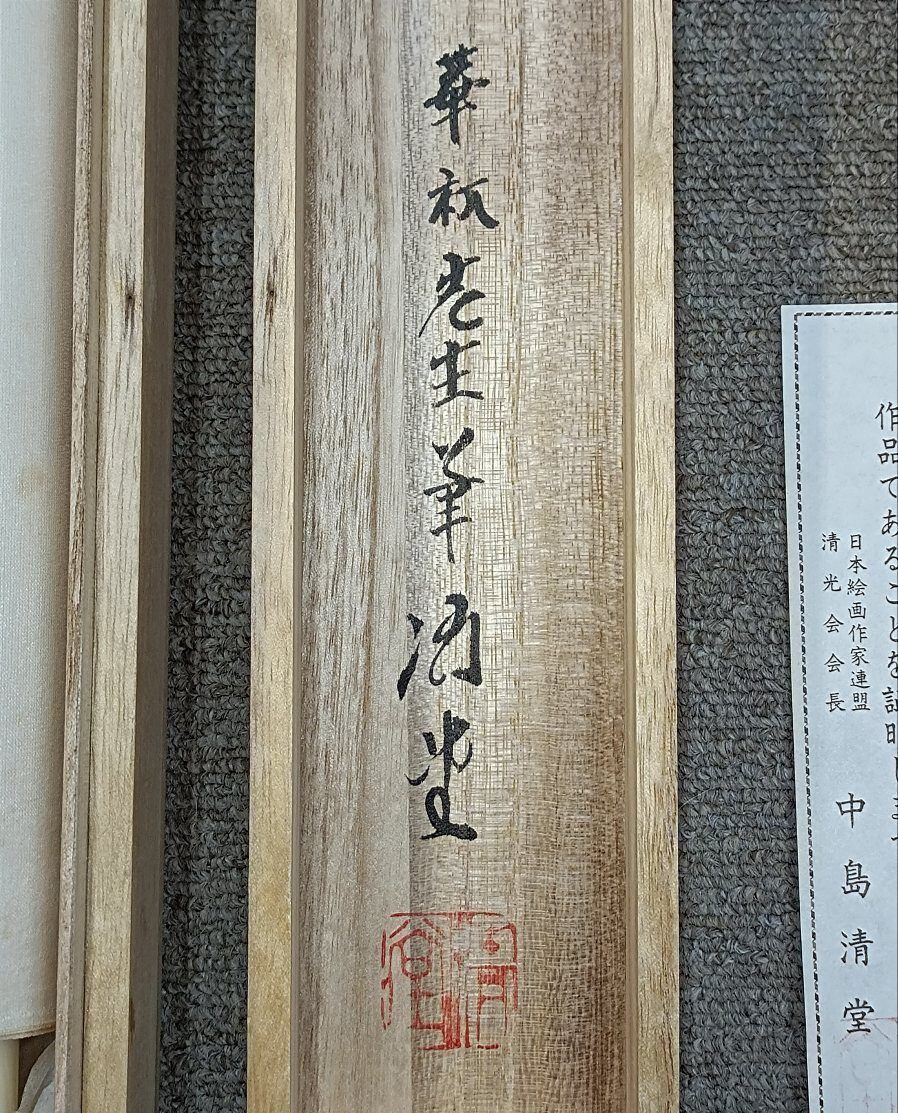 作品であることを証明します
日本絵画作家連盟
清光会会長
中島清堂
華祇先生筆 清堂
清堂